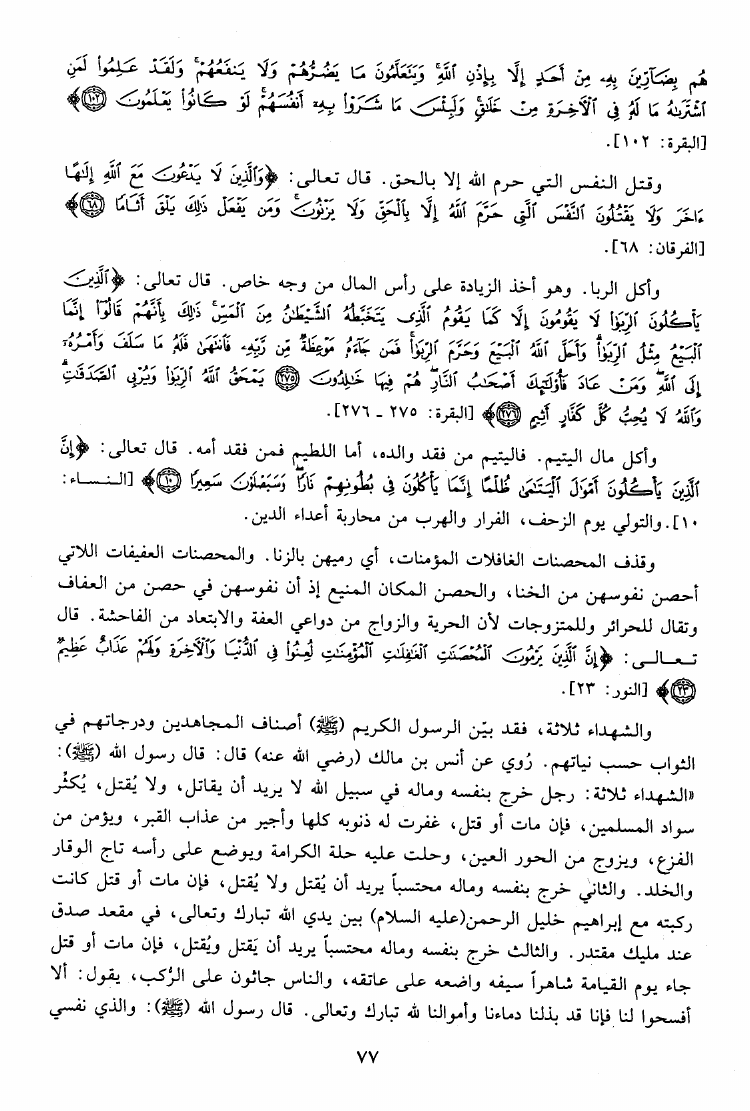 هُم بِضَآرِّينَ بِهِۦ مِنْ أَحَدٍ إِلَّا بِإِذْنِ ٱللَّهِ ۚ وَيَتَعَلَّمُونَ مَا يَضُرُّهُمْ وَلَا يَنفَعُهُمْ ۚ وَلَقَدْ عَلِمُوا۟ لَمَنِ
ٱشْتَرَىٰهُ مَا لَهُۥ فِى ٱلْـَٔاخِرَةِ مِنْ خَلَـٰقٍ ۚ وَلَبِئْسَ مَا شَرَوْا۟ بِهِۦٓ أَنفُسَهُمْ ۚ لَوْ كَانُوا۟ يَعْلَمُونَ ﴿١٠٢﴾
[البقرة: ١٠٢].
وقتل النفس التي حرم الله إلا بالحق. قال تعالى: ﴿وَٱلَّذِينَ لَا يَدْعُونَ مَعَ ٱللَّهِ إِلَـٰهًا
ءَاخَرَ وَلَا يَقْتُلُونَ ٱلنَّفْسَ ٱلَّتِى حَرَّمَ ٱللَّهُ إِلَّا بِٱلْحَقِّ وَلَا يَزْنُونَ ۚ وَمَن يَفْعَلْ ذَٰلِكَ يَلْقَ أَثَامًا ﴿٦٨﴾
[الفرقان: ٦٨].
وأكل الربا. وهو أخذ الزيادة على رأس المال من وجه خاص. قال تعالى: ﴿ٱلَّذِينَ
يَأْكُلُونَ ٱلرِّبَوٰا۟ لَا يَقُومُونَ إِلَّا كَمَا يَقُومُ ٱلَّذِى يَتَخَبَّطُهُ ٱلشَّيْطَـٰنُ مِنَ ٱلْمَسِّ ۚ ذَٰلِكَ بِأَنَّهُمْ قَالُوٓا۟ إِنَّمَا
ٱلْبَيْعُ مِثْلُ ٱلرِّبَوٰا۟ ۗ وَأَحَلَّ ٱللَّهُ ٱلْبَيْعَ وَحَرَّمَ ٱلرِّبَوٰا۟ ۚ فَمَن جَآءَهُۥ مَوْعِظَةٌ مِّن رَّبِّهِۦ فَٱنتَهَىٰ فَلَهُۥ مَا سَلَفَ وَأَمْرُهُۥٓ
إِلَى ٱللَّهِ ۖ وَمَنْ عَادَ فَأُو۟لَـٰٓئِكَ أَصْحَـٰبُ ٱلنَّارِ ۖ هُمْ فِيهَا خَـٰلِدُونَ ﴿٢٧٥﴾ يَمْحَقُ ٱللَّهُ ٱلرِّبَوٰا۟ وَيُرْبِى ٱلصَّدَقَـٰتِ ۗ
وَٱللَّهُ لَا يُحِبُّ كُلَّ كَفَّارٍ أَثِيمٍ ﴿٢٧٦﴾ [البقرة: ٢٧٥ ـ ٢٧٦].
وأكل مال اليتيم. فاليتيم من فقد والده، أما اللطيم فمن فقد أمه. قال تعالى: ﴿إِنَّ
ٱلَّذِينَ يَأْكُلُونَ أَمْوَٰلَ ٱلْيَتَـٰمَىٰ ظُلْمًا إِنَّمَا يَأْكُلُونَ فِى بُطُونِهِمْ نَارًا ۖ وَسَيَصْلَوْنَ سَعِيرًا ﴿١٠﴾ [النساء:
١٠]. والتولي يوم الزحف، الفرار والهرب من محاربة أعداء الدين.
وقذف المحصنات الغافلات المؤمنات، أي رميهن بالزنا. والمحصنات العفيفات اللاتي
أحصن نفوسهن من الخنا، والحصن المكان المنيع إذ أن نفوسهن في حصن من العفاف
وتقال للحرائر وللمتزوجات لأن الحرية والزواج من دواعي العفة والابتعاد من الفاحشة. قال
تعالى: ﴿إِنَّ ٱلَّذِينَ يَرْمُونَ ٱلْمُحْصَنَـٰتِ ٱلْغَـٰفِلَـٰتِ ٱلْمُؤْمِنَـٰتِ لُعِنُوا۟ فِى ٱلدُّنْيَا وَٱلْـَٔاخِرَةِ وَلَهُمْ عَذَابٌ عَظِيمٌ
﴿٢٣﴾ [النور: ٢٣].
والشهداء ثلاثة، فقد بيّن الرسول الكريم (ﷺ) أصناف المجاهدين ودرجاتهم في
الثواب حسب نياتهم. رُوي عن أنس بن مالك (رضي الله عنه) قال: قال رسول الله (ﷺ):
«الشهداء ثلاثة: رجل خرج بنفسه وماله في سبيل الله لا يريد أن يقاتل، ولا يُقتل، يُكثِّر
سواد المسلمين، فإن مات أو قتل، غفرت له ذنوبه كلها وأجير من عذاب القبر، ويؤمن من
الفزع، ويزوج من الحور العين، وحلت عليه حلة الكرامة ويوضع على رأسه تاج الوقار
والخلد. والثاني خرج بنفسه وماله محتسباً يريد أن يُقتل ولا يُقتل، فإن مات أو قتل كانت
ركبته مع إبراهيم خليل الرحمن(عليه السلام) بين يدي الله تبارك وتعالى، في مقعد صدق
عند مليك مقتدر. والثالث خرج بنفسه وماله محتسباً يريد أن يَقتل ويُقتل، فإن مات أو قتل
جاء يوم القيامة شاهراً سيفه واضعه على عاتقه، والناس جاثون على الرُّكب، يقول: ألا
أفسحوا لنا فإنا قد بذلنا دماءنا وأموالنا لله تبارك وتعالى. قال رسول الله (ﷺ): والذي نفسي
٧٧